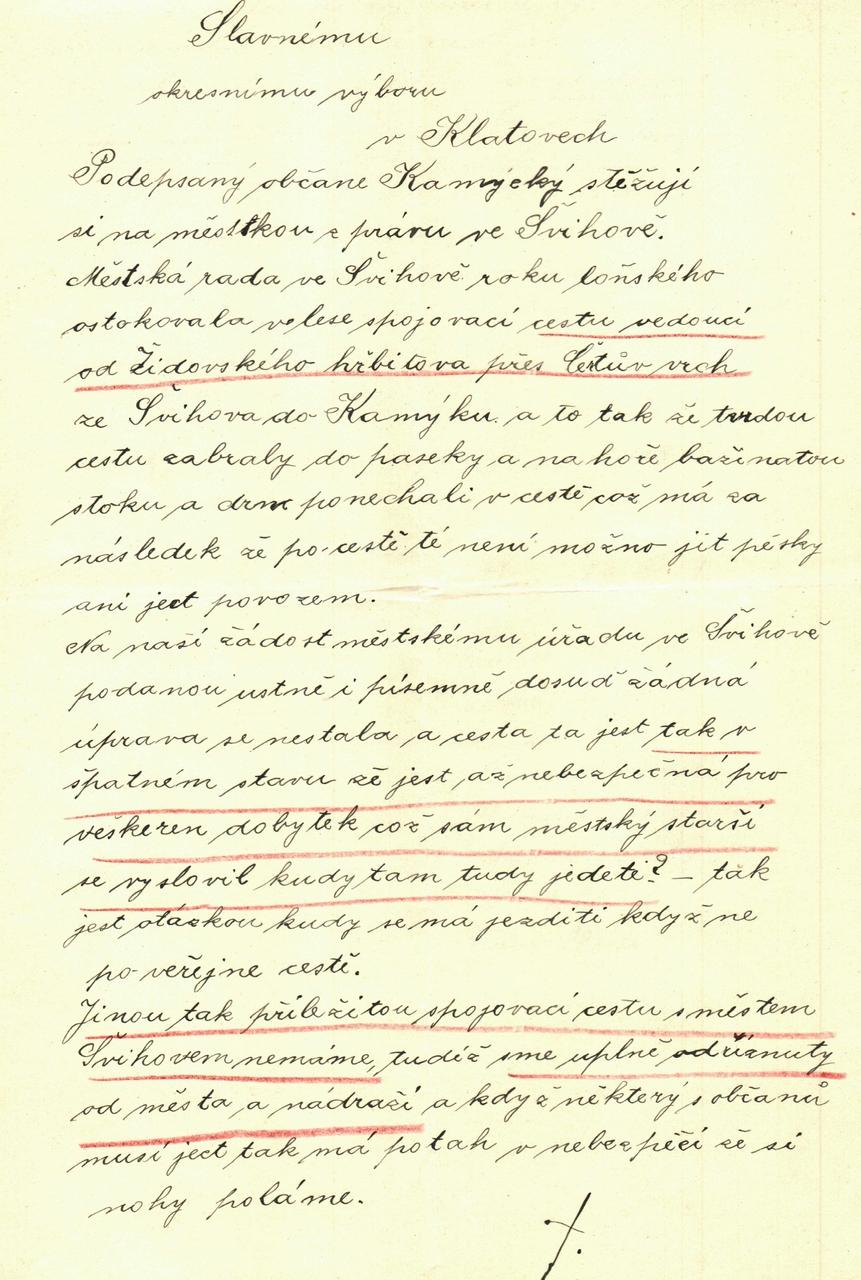 Slavnému
okresnímu výboru
v Klatovech
Podepsaný občane Kamýcký stěžují
si na městkou zprávu ve Švihově.
Městská rada ve Švihově roku loňského
ostokovala velese spojovací cestu vedoucí
od Židovského hřbitova přes Čertův vrch
ze Švihova do Kamýku a to tak že tvrdou
cestu zabraly do paseky a na hoře bažinatou
stoku a drn ponechali v cestě což má za
následek že po cestě té není možno jít pěsky
ani ject povozem.
Na naší žádost městskému úřadu ve Švihově
podanou ustně i písemně dosud žádná
úprava se nestala a cesta ta jest tak v
špatném stavu že jest až nebezpečná pro
veškeren dobytek což sám městský starší
se vyslovil kudy tam tudy jedete? – tak
jest otázkou kudy se má jezditi když ne
po veřejne cestě.
Jinou tak příležitou spojovací cestu s městem
Švihovem nemáme, tudíž sme uplně odříznuty
od města a nádraží a když některý s občanů
musí ject tak má potah v nebezpečí že si
nohy poláme.